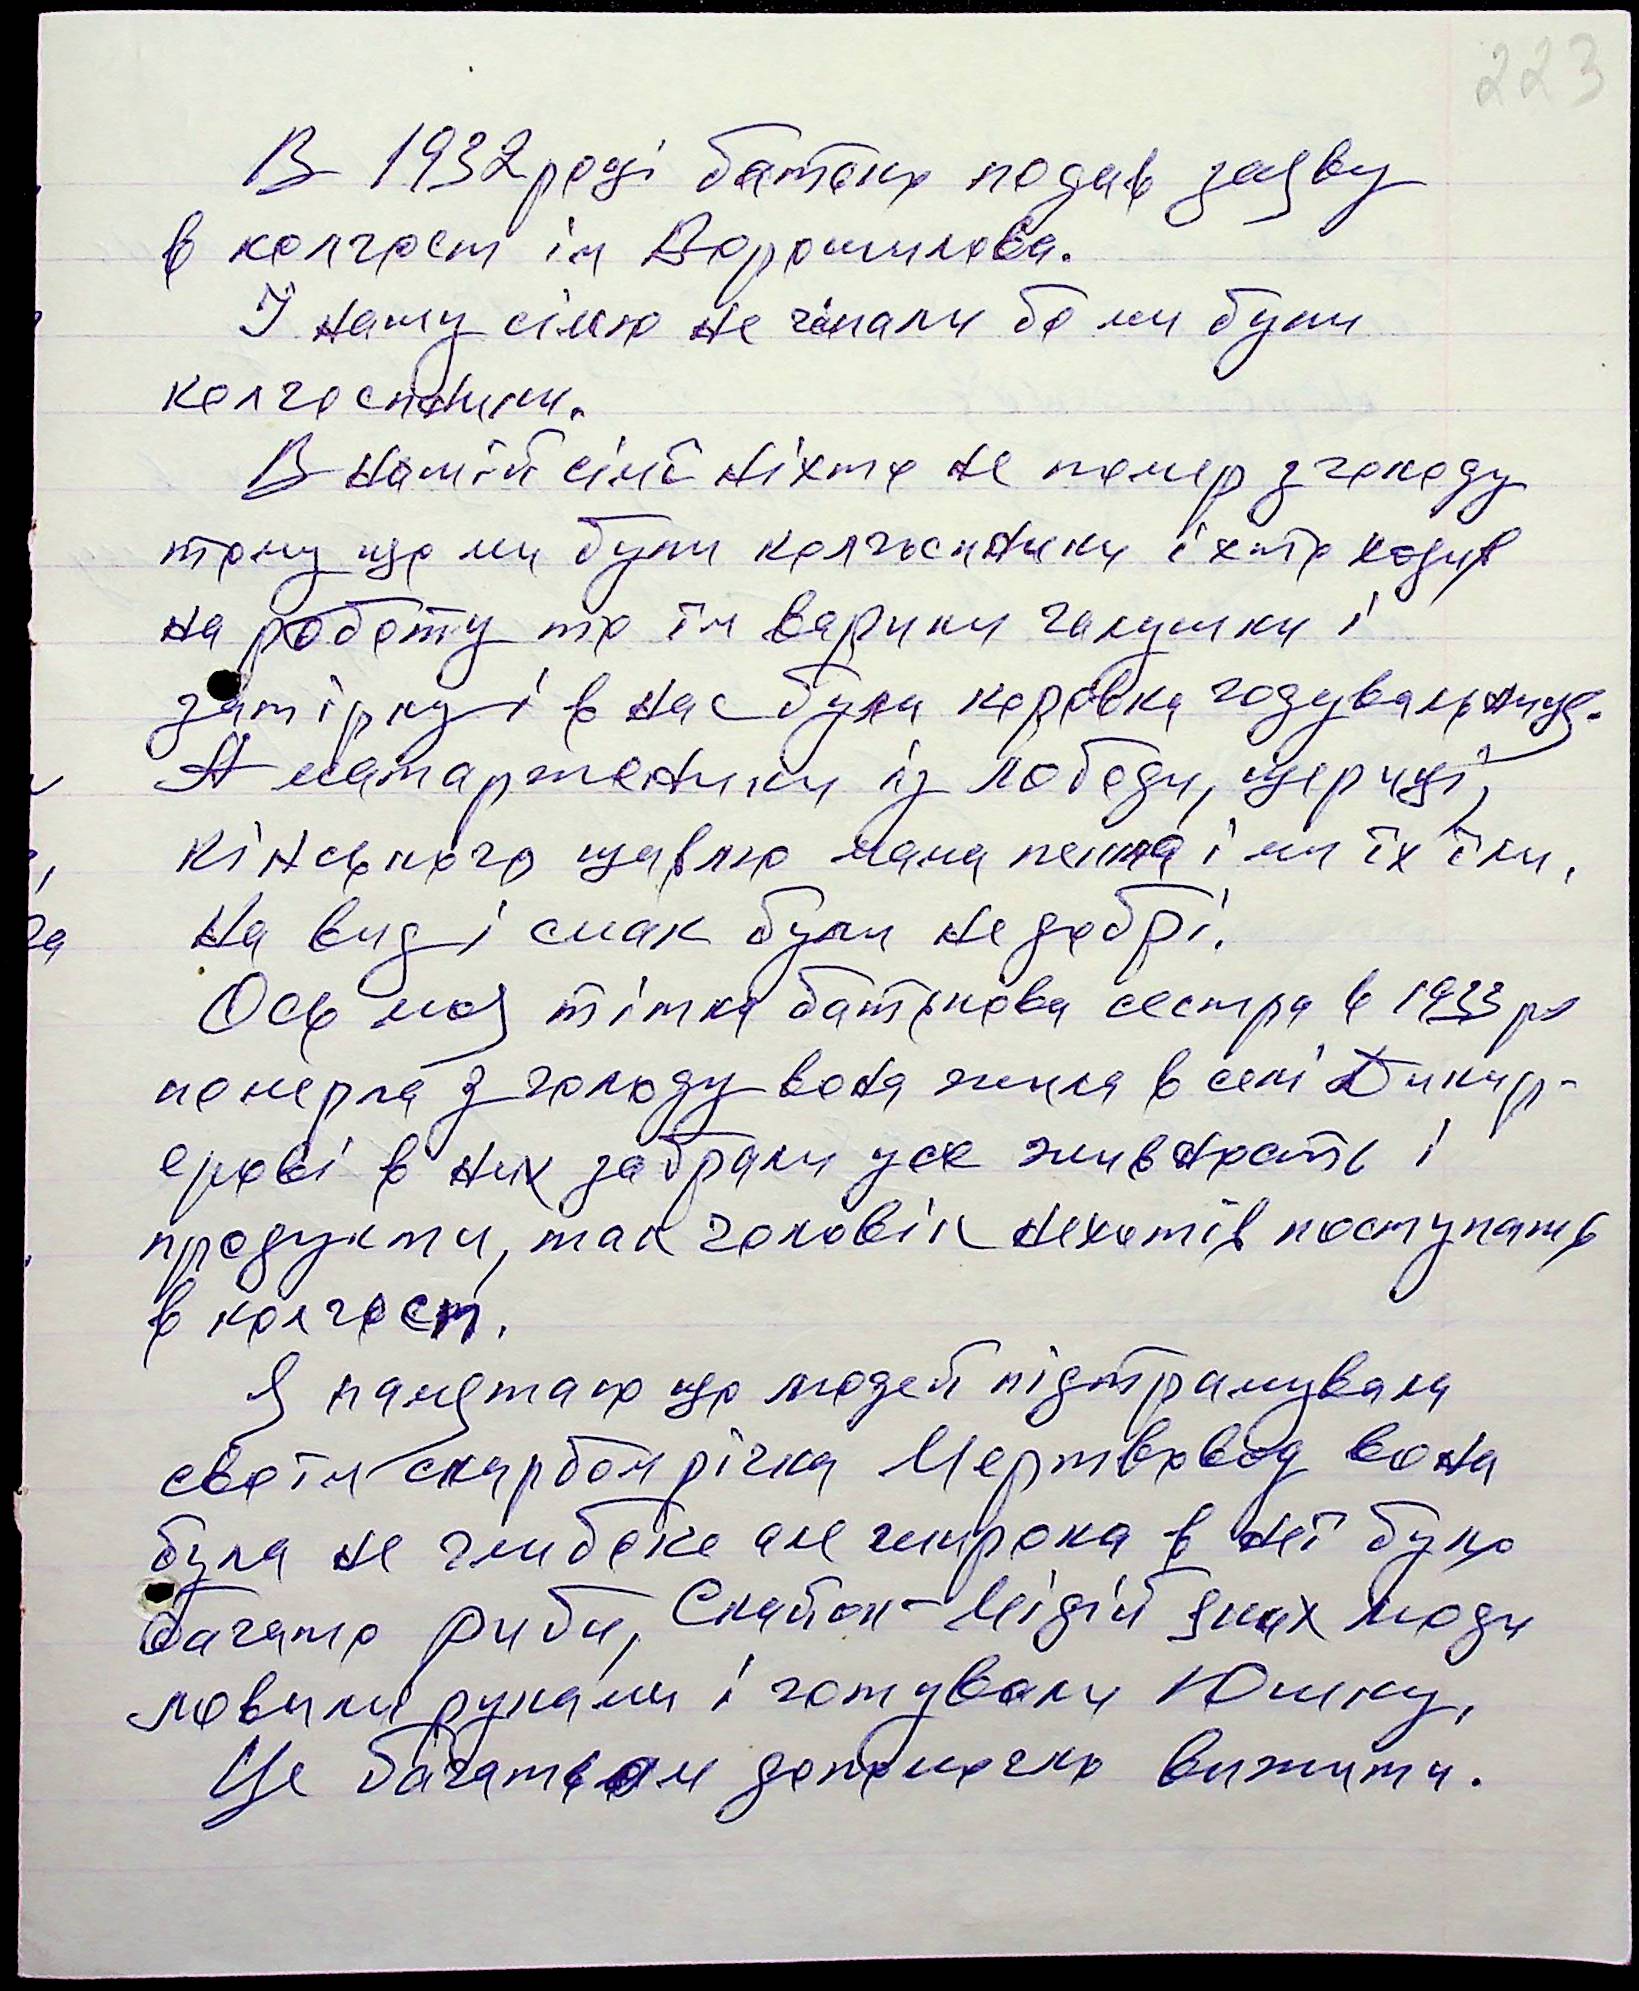 223
В 1932 році батько подав заяву
в колгосп ім Ворошилова.
І нашу сімю не чіпали бо ми були
колгоспники.
В нашій сімї ніхто не помер з голоду
тому що ми були колгоспники і хто ходив
на роботу то їм варили галушки і
затірку і в нас була корівка годувальниця.
А маторженики із лободи, щериці,
кінського щавлю мама пекла і ми їх їли,
на вид і смак були не добрі.
Ось моя тітка батькова сестра в 1933 р
померла з голоду вона жила в селі
в них забрали усе живность і
продукти, так чоловік нехотів поступать
в колгосп.
Я памятаю що людей підтримувала
своїм скарбом річка Мертвовод вона
була не глибоке але широка в неї було
багато риби, Скайок-Мідій яких люди
ловили руками і готували Юшку,
Це багатьом допомогло вижити.